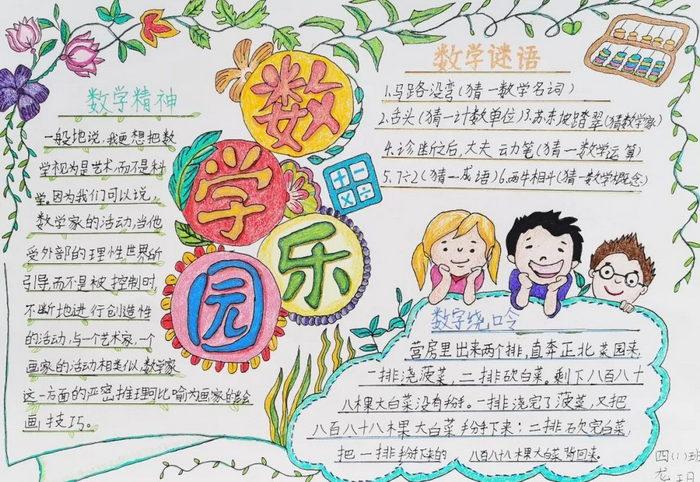 数学精神
一般地说,我更想把数
学视为是艺术,而不是科
学。因为我们可以说,
数学家的活动,当他
受外部的理性世界所
引导,而不是被控制时,
不断地进行创造性
的活动,与一个艺术家,一个
画家的活动相类似,数学家
这一方面的严密推理可比喻为画家的绘
画技巧。
数
学
乐
园
数学谜语
1.马路没弯(猜一数学名词)
2.舌头(猜一计数单位)3.苏东坡踏翠(猜数学家)
4.诊断之后,大夫动笔(猜一数学运算)
5.7÷2(猜一成语)6.两牛相斗(猜一数学概念)
数字绕口令
营房里出来两个排,直奔正北菜园来,
一排浇菠菜,二排砍白菜。剩下八百八十
八棵大白菜没有掰。一排浇完了菠菜,又把
八百八十八棵大白菜掰下来;二排砍完白菜,
把一排掰下来的 八百八十八棵大白菜背回来。
四(1)班
龙玥